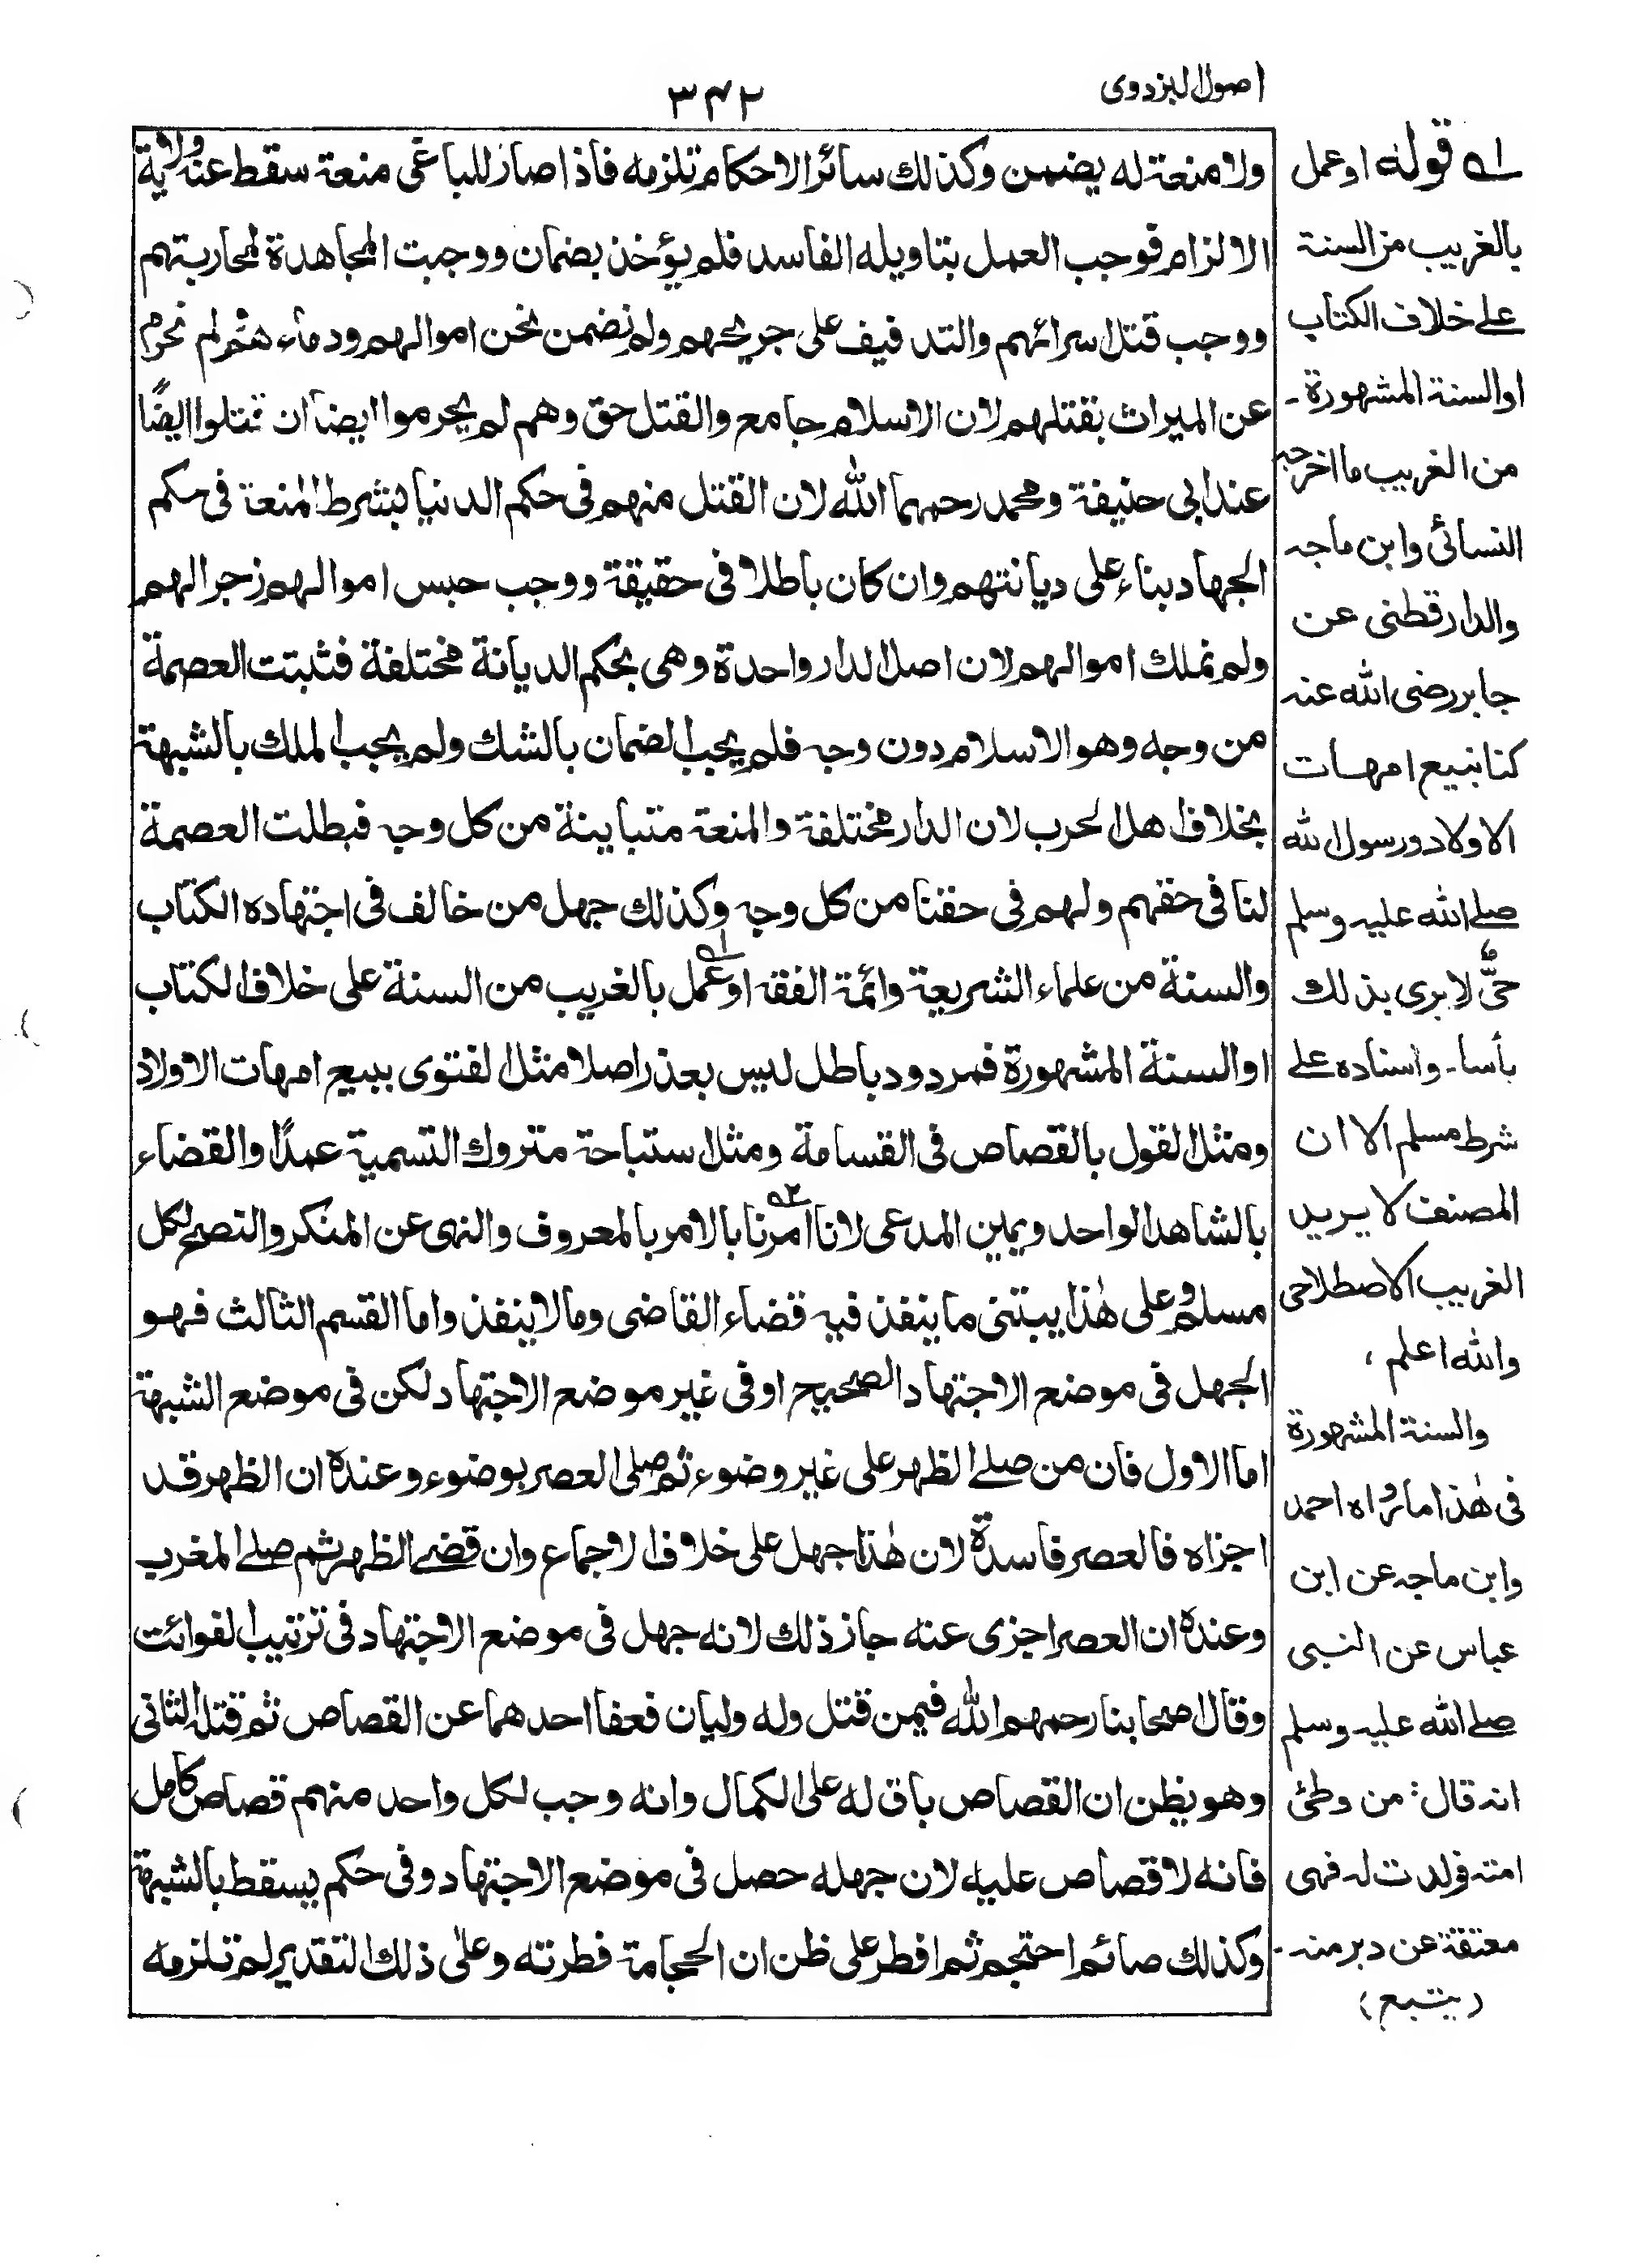 اصول البزدوی
۳۴۲
ولا منعة له يضمن وكذلك سائر الاحكام تلزمه فاذا صار للباغى منعة سقط عنه ولاية
الالزام فوجب العمل بتاويله الفاسد فلم يؤخذ بضمان ووجبت المجاهدة لمحاربتهم
ووجب قتل اسرائهم والتدفيف على جريحهم ولم نضمن نحن اموالهم ودماءهم ثم لم نحرم
عن الميراث بقتلهم لان الاسلام جامع والقتل حق وهم لم يحرموا ايضا ان قتلوا ايضًا
عند ابى حنيفة ومحمد رحمهما الله لان القتل منهم فى حكم الدنيا بشرط المنعة فى حكم
الجهاد بناء على ديانتهم وان كان باطلا فى حقيقة ووجب حبس اموالهم زجرا لهم
ولم نملك اموالهم لان اصل الدار واحدة وهى بحكم الديانة مختلفة فثبتت العصمة
من وجه وهو الاسلام دون وجه فلم يجب الضمان بالشك ولم يجب الملك بالشبهة
بخلاف اهل الحرب لان الدار مختلفة والمنعة متباينة من كل وجه فبطلت العصمة
لنا فى حقهم ولهم فى حقنا من كل وجه وكذلك جهل من خالف فى اجتهاده الكتاب
والسنة من علماء الشريعة وائمة الفقه او عمل ۱ه بالغريب من السنة على خلاف الكتاب
او السنة المشهورة فمردود باطل ليس بعذر اصلا مثل الفتوى ببيع امهات الاولاد
ومثل القول بالقصاص فى القسامة ومثل استباحة متروك التسمية عمدًا والقضاء
بالشاهد الواحد ويمين المدعى لانا امرنا ۲ه بالامر بالمعروف والنهى عن المنكر والنصح لكل
مسلم وعلى هٰذا يبتنى ما ينفذ فيه قضاء القاضى وما لا ينفذ واما القسم الثالث فهو
الجهل فى موضع الاجتهاد الصحيح او فى غير موضع الاجتهاد لكن فى موضع الشبهة
اما الاول فان من صلے الظهر على غير وضوء ثم صلى العصر بوضوء وعنده ان الظهر قد
اجزاه فالعصر فاسدة لان هٰذا جهل على خلاف الاجماع وان قضے الظهر ثم صلے المغرب
وعنده ان العصر اجزى عنه جاز ذلك لانه جهل فى موضع الاجتهاد فى ترتيب الفوائت
وقال اصحابنا رحمهم الله فيمن قتل وله وليان فعفا احدهما عن القصاص ثم قتله الثانى
وهو يظن ان القصاص باق له على الكمال وانه وجب لكل واحد منهم قصاص كامل
فانه لا قصاص عليه لان جهله حصل فى موضع الاجتهاد وفى حكم يسقط بالشبهة
وكذلك صائم احتجم ثم افطر على ظن ان الحجامة فطرته وعلى ذلك التقدير لم تلزمه
۱ه قوله او عمل
بالغريب من السنة
علے خلاف الكتاب
او السنة المشهورة -
من الغريب ما اخرجه
النسائى وابن ماجه
والدارقطنى عن
جابر رضى الله عنه
كنا نبيع امهات
الاولاد ورسول الله
صلے الله عليه وسلم
حىّ لا يرى بذلك
بأسا - واسناده علے
شرط مسلم الا ان
المصنف لا يريد
الغريب الاصطلاحى
والله اعلم ،
والسنة المشهورة
فى هٰذا ما رواه احمد
وابن ماجه عن ابن
عباس عن النبى
صلے الله عليه وسلم
انه قال: من وطئ
امته فولدت له فهى
معتقة عن دبر منه -
(يتبع)